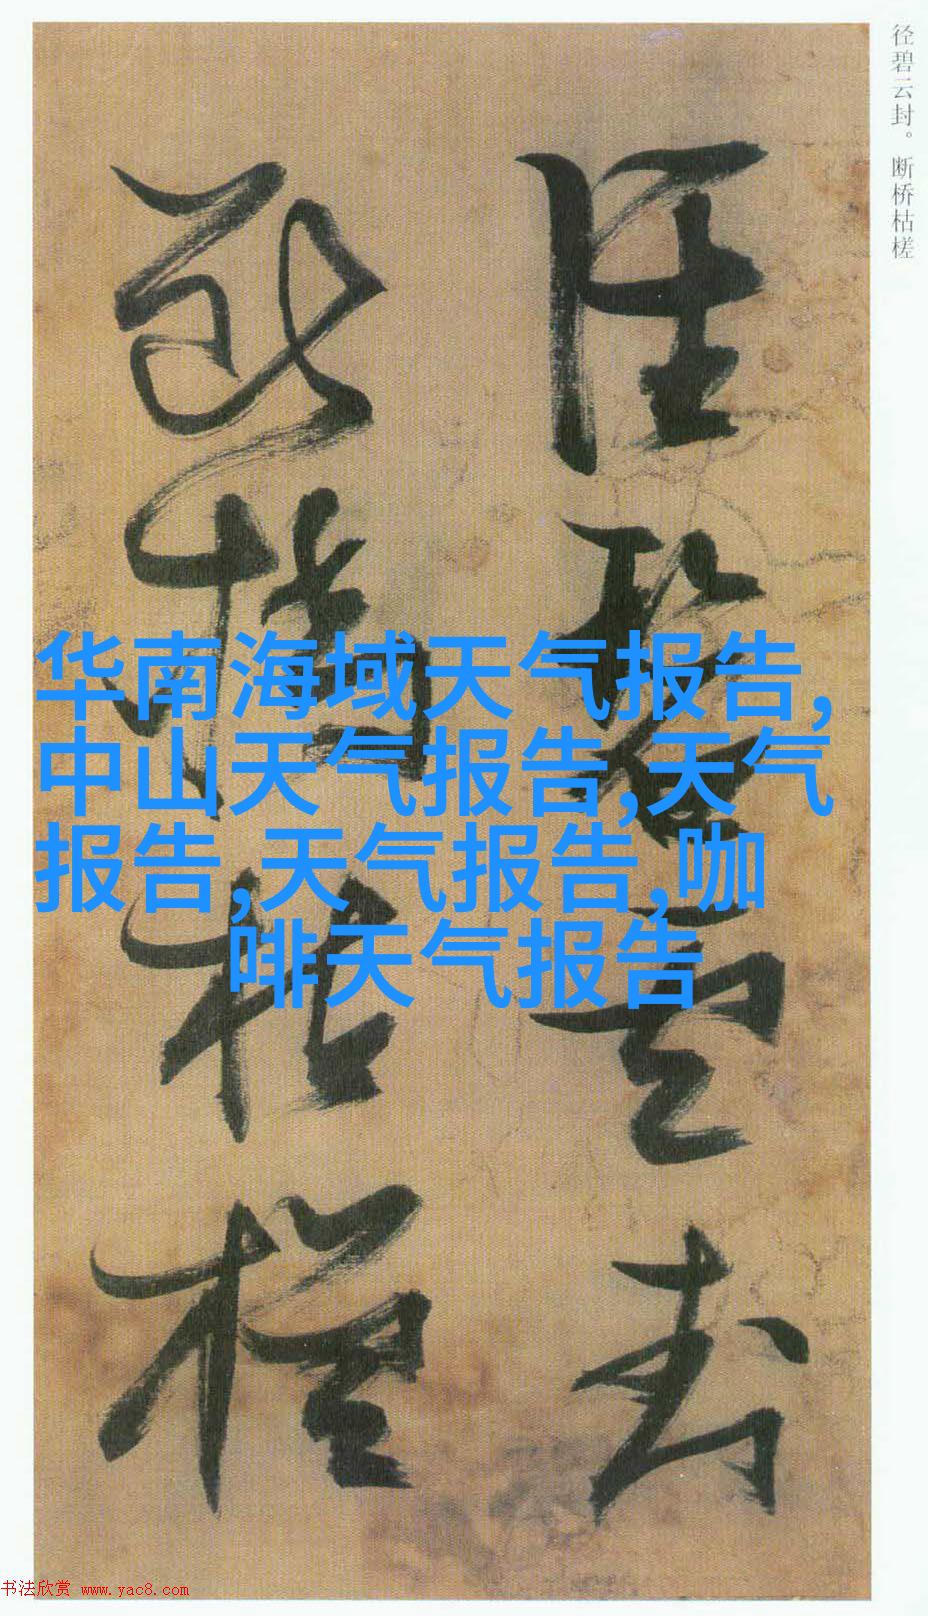 径碧云封。断桥枯槎
径碧云封
断桥枯槎
华南海域天气报告,
中山天气报告,天气
报告,天气报告,咖
啡天气报告
书法欣赏 www.yac8.com